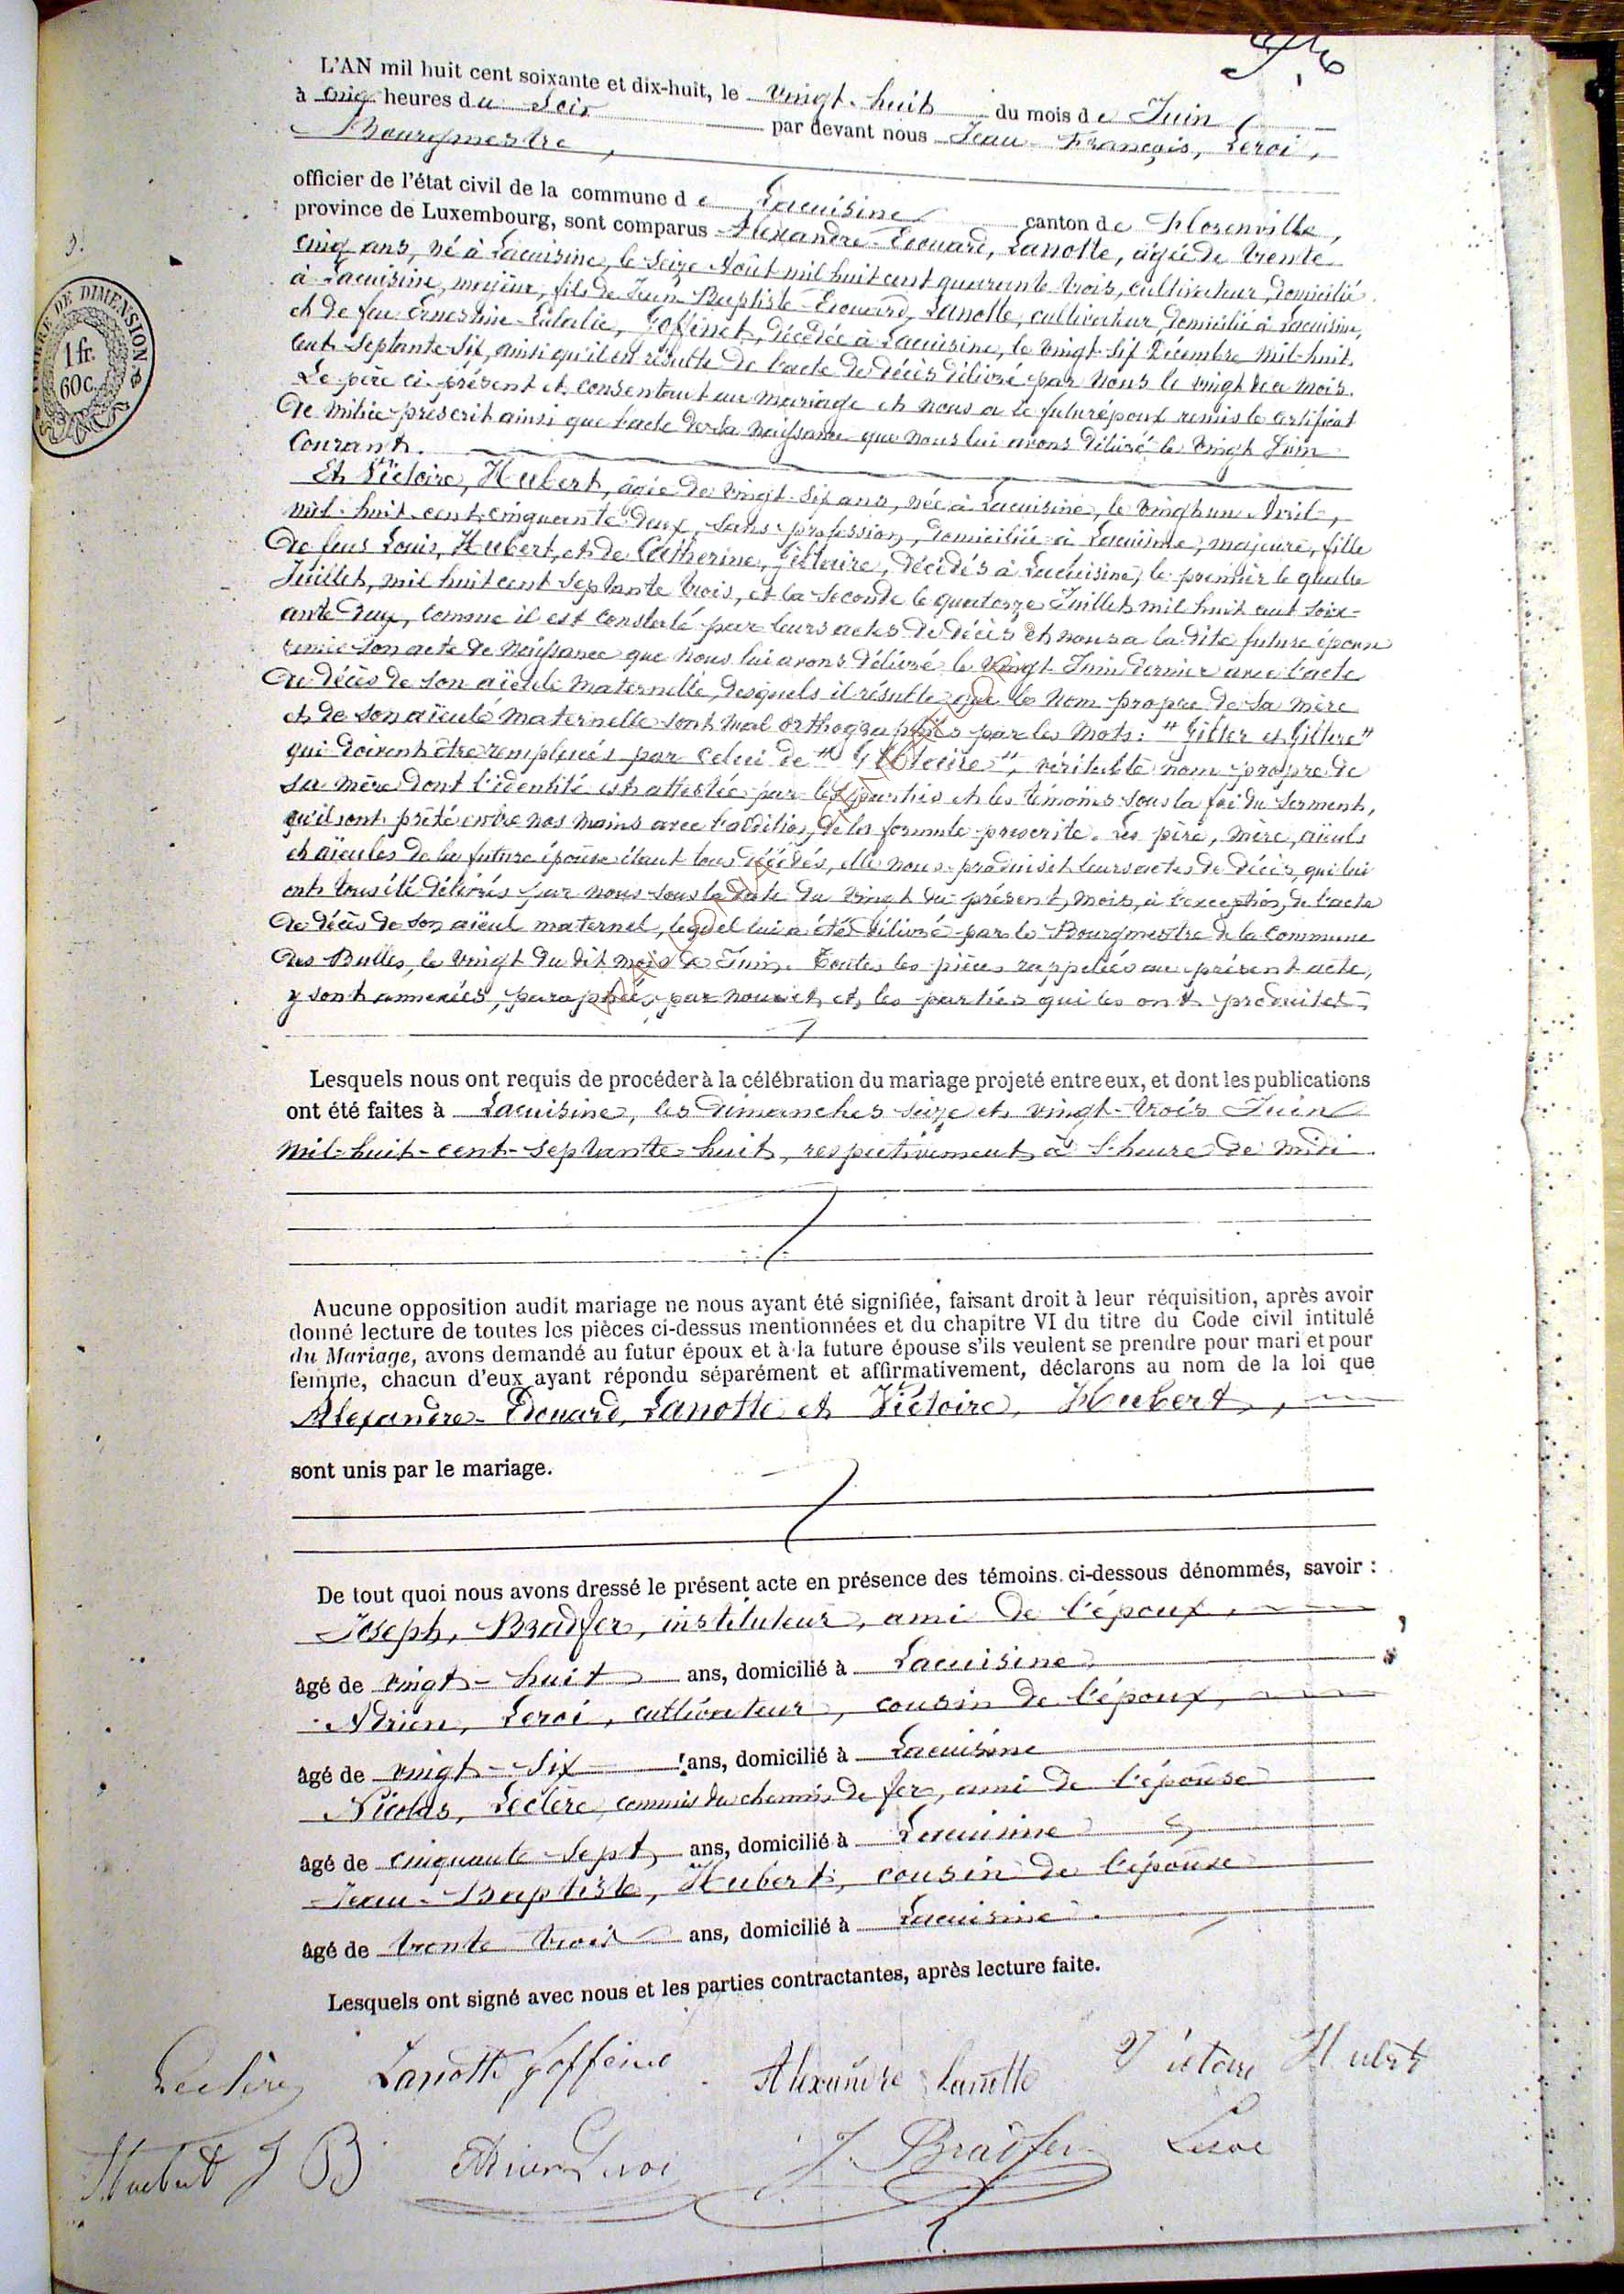 L'AN mil huit cent soixante et dix-huit, le vingt-huit du mois de Juin
à cinq heures du Soir par devant nous Jean-François, Leroi,
Bourgmestre,
officier de l'état civil de la commune de Lacuisine canton de Florenville,
province de Luxembourg, sont comparus Alexandre-Edouard, Lanotte, âgé de trente
cinq ans, né à Lacuisine, le seize Août mil huit cent quarante trois, cultivateur, domicilié
à Lacuisine, majeur, fils de Jean-Baptiste-Edouard, Lanotte, cultivateur, domicilié à Lacuisine,
et de feu Ernestine-Eulalie, Goffinet, décédée à Lacuisine, le vingt-six Décembre mil-huit-
cent-septante-six, ainsi qu'il en résulte de l'acte de décès délivré par nous le vingt de ce mois.
Le père ci-présent et consentant au mariage et nous a le futur époux remis le certificat
de milice prescrit ainsi que l'acte de sa naissance que nous lui avons délivré le vingt Juin
courant.
Et Victoire, Hubert, âgée de vingt-six ans, née à Lacuisine, le vingt un Avril,
mil-huit-cent-cinquante-deux, sans profession, domiciliée à Lacuisine, majeure, fille
de feus Louis, Hubert, et de Catherine, Gilteire, décédés à Lacuisine, le premier le quatre
Juillet, mil huit cent septante trois, et la seconde le quatorze Juillet mil huit cent soix-
ante deux, comme il est constaté par leurs actes de décès et nous a la dite future épouse
remis son acte de naissance que nous lui avons délivré le vingt Juin dernier avec l'acte
de décès de son aïeule maternelle, desquels il résulte que le nom propre de sa mère
et de son aïeule maternelle sont mal orthographiés par les mots: " Gilter et Giltere "
qui doivent être remplacés par celui de " Gilteire ", véritable nom propre de
sa mère dont l'identité est attestée par les parties et les témoins sous la foi du serment,
qu'ils ont prêté entre nos mains avec l'addition de la formule prescrite. Les père, mère, aïeuls
et aïeules de la future épouse étant tous décédés, elle nous produisit leurs actes de décès, qui lui
ont tous été délivrés par nous sous la date du vingt du présent mois, à l'exception de l'acte
de décès de son aïeul maternel, lequel lui a été délivré par le Bourgmestre de la commune
des Bulles, le vingt du dit mois de Juin. Toutes les pièces rappelées au présent acte,
y sont annexées, paraphées par nous et les parties qui les ont produites.
Lesquels nous ont requis de procéder à la célébration du mariage projeté entre eux, et dont les publications
ont été faites à Lacuisine, les dimanches seize et vingt-trois Juin
mil-huit-cent-septante-huit, respectivement à l'heure de midi.
Aucune opposition audit mariage ne nous ayant été signifiée, faisant droit à leur réquisition, après avoir
donné lecture de toutes les pièces ci-dessus mentionnées et du chapitre VI du titre du Code civil intitulé
du Mariage, avons demandé au futur époux et à la future épouse s'ils veulent se prendre pour mari et pour
femme, chacun d'eux ayant répondu séparément et affirmativement, déclarons au nom de la loi que
Alexandre-Edouard, Lanotte et Victoire, Hubert,
sont unis par le mariage.
De tout quoi nous avons dressé le présent acte en présence des témoins ci-dessous dénommés, savoir :
Joseph, Bradfer, instituteur, ami de l'époux,
âgé de vingt-huit ans, domicilié à Lacuisine
Adrien, Leroi, cultivateur, cousin de l'époux,
âgé de vingt-six ans, domicilié à Lacuisine
Nicolas, Leclère, commis du chemin de fer, ami de l'épouse
âgé de cinquante-sept ans, domicilié à Lacuisine
Jean-Baptiste, Hubert, cousin de l'épouse
âgé de trente trois ans, domicilié à Lacuisine.
Lesquels ont signé avec nous et les parties contractantes, après lecture faite.
Leclère Lanotte Goffinet Alexandre Lanotte Victoire Hubert
Huebert J B Adrien Leroi J. Bradfer Leroi
TIMBRE DE DIMENSION
1 fr.
60 c.